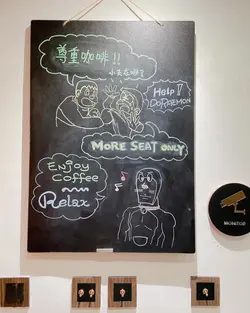 尊重咖啡!!
Help!
DORAEMON
MORE SEAT ONLY
ENJOY
COFFEE
Relax
MONITOR